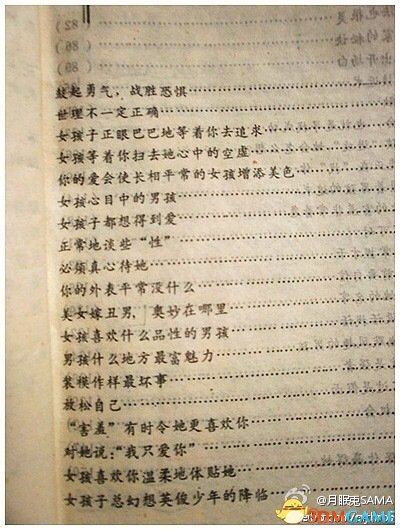 鼓起勇气，战胜恐惧…………
世理不一定正确…………
女孩子正眼巴巴地等着你去追求…………
女孩等着你扫去她心中的空虚…………
你的爱会使长相平常的女孩增添美色…………
女孩心目中的男孩…………
女孩子都想得到爱…………
正常地谈些“性”…………
必须真心待她…………
你的外表平常没什么…………
美女嫁丑男，奥妙在哪里…………
女孩喜欢什么品性的男孩…………
男孩什么地方最富魅力…………
装模作样最坏事…………
放松自己…………
“害羞”有时令她更喜欢你…………
对她说：“我只爱你”…………
女孩喜欢你温柔地体贴她…………
女孩子总幻想英俊少年的降临…………
@月眠兔SAMA